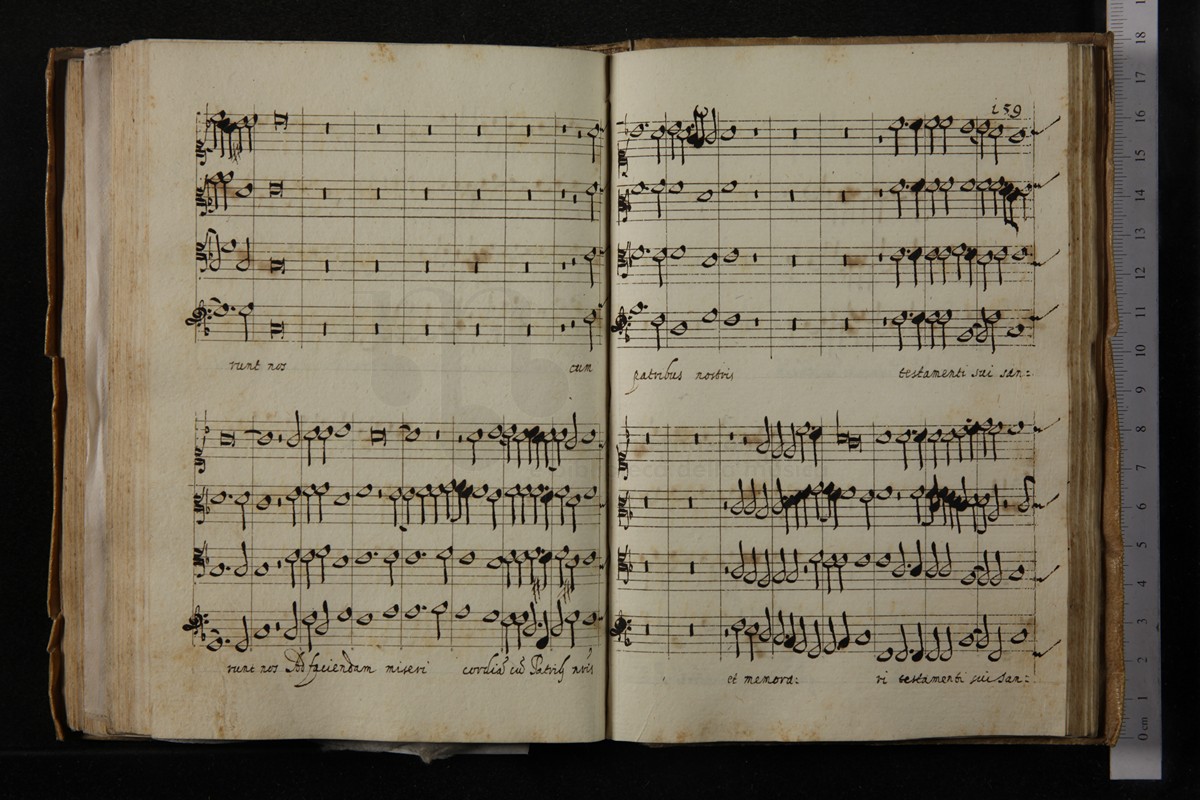 159
runt nos cum
runt nos Ad faciendam miseri cordiã cũ Patrib nris
patribus nostris testamenti sui san:
et memora: ri testamenti sui san:
18
17
16
15
14
13
12
11
10
9
8
7
6
5
4
3
2
1
0 cm